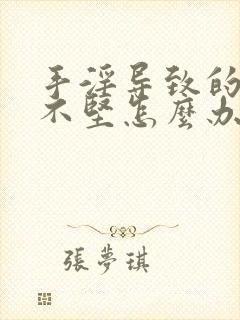 手淫导致的
不坚怎麽办
張夢琪